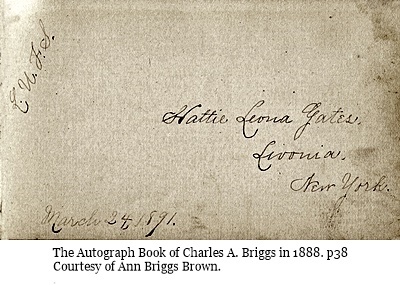 L. U. F. S.
Hattie Leona Gates.
Livonia.
New York.
March 24, 1891.
The Autograph Book of Charles A. Briggs in 1888. p38
Courtesy of Ann Briggs Brown.